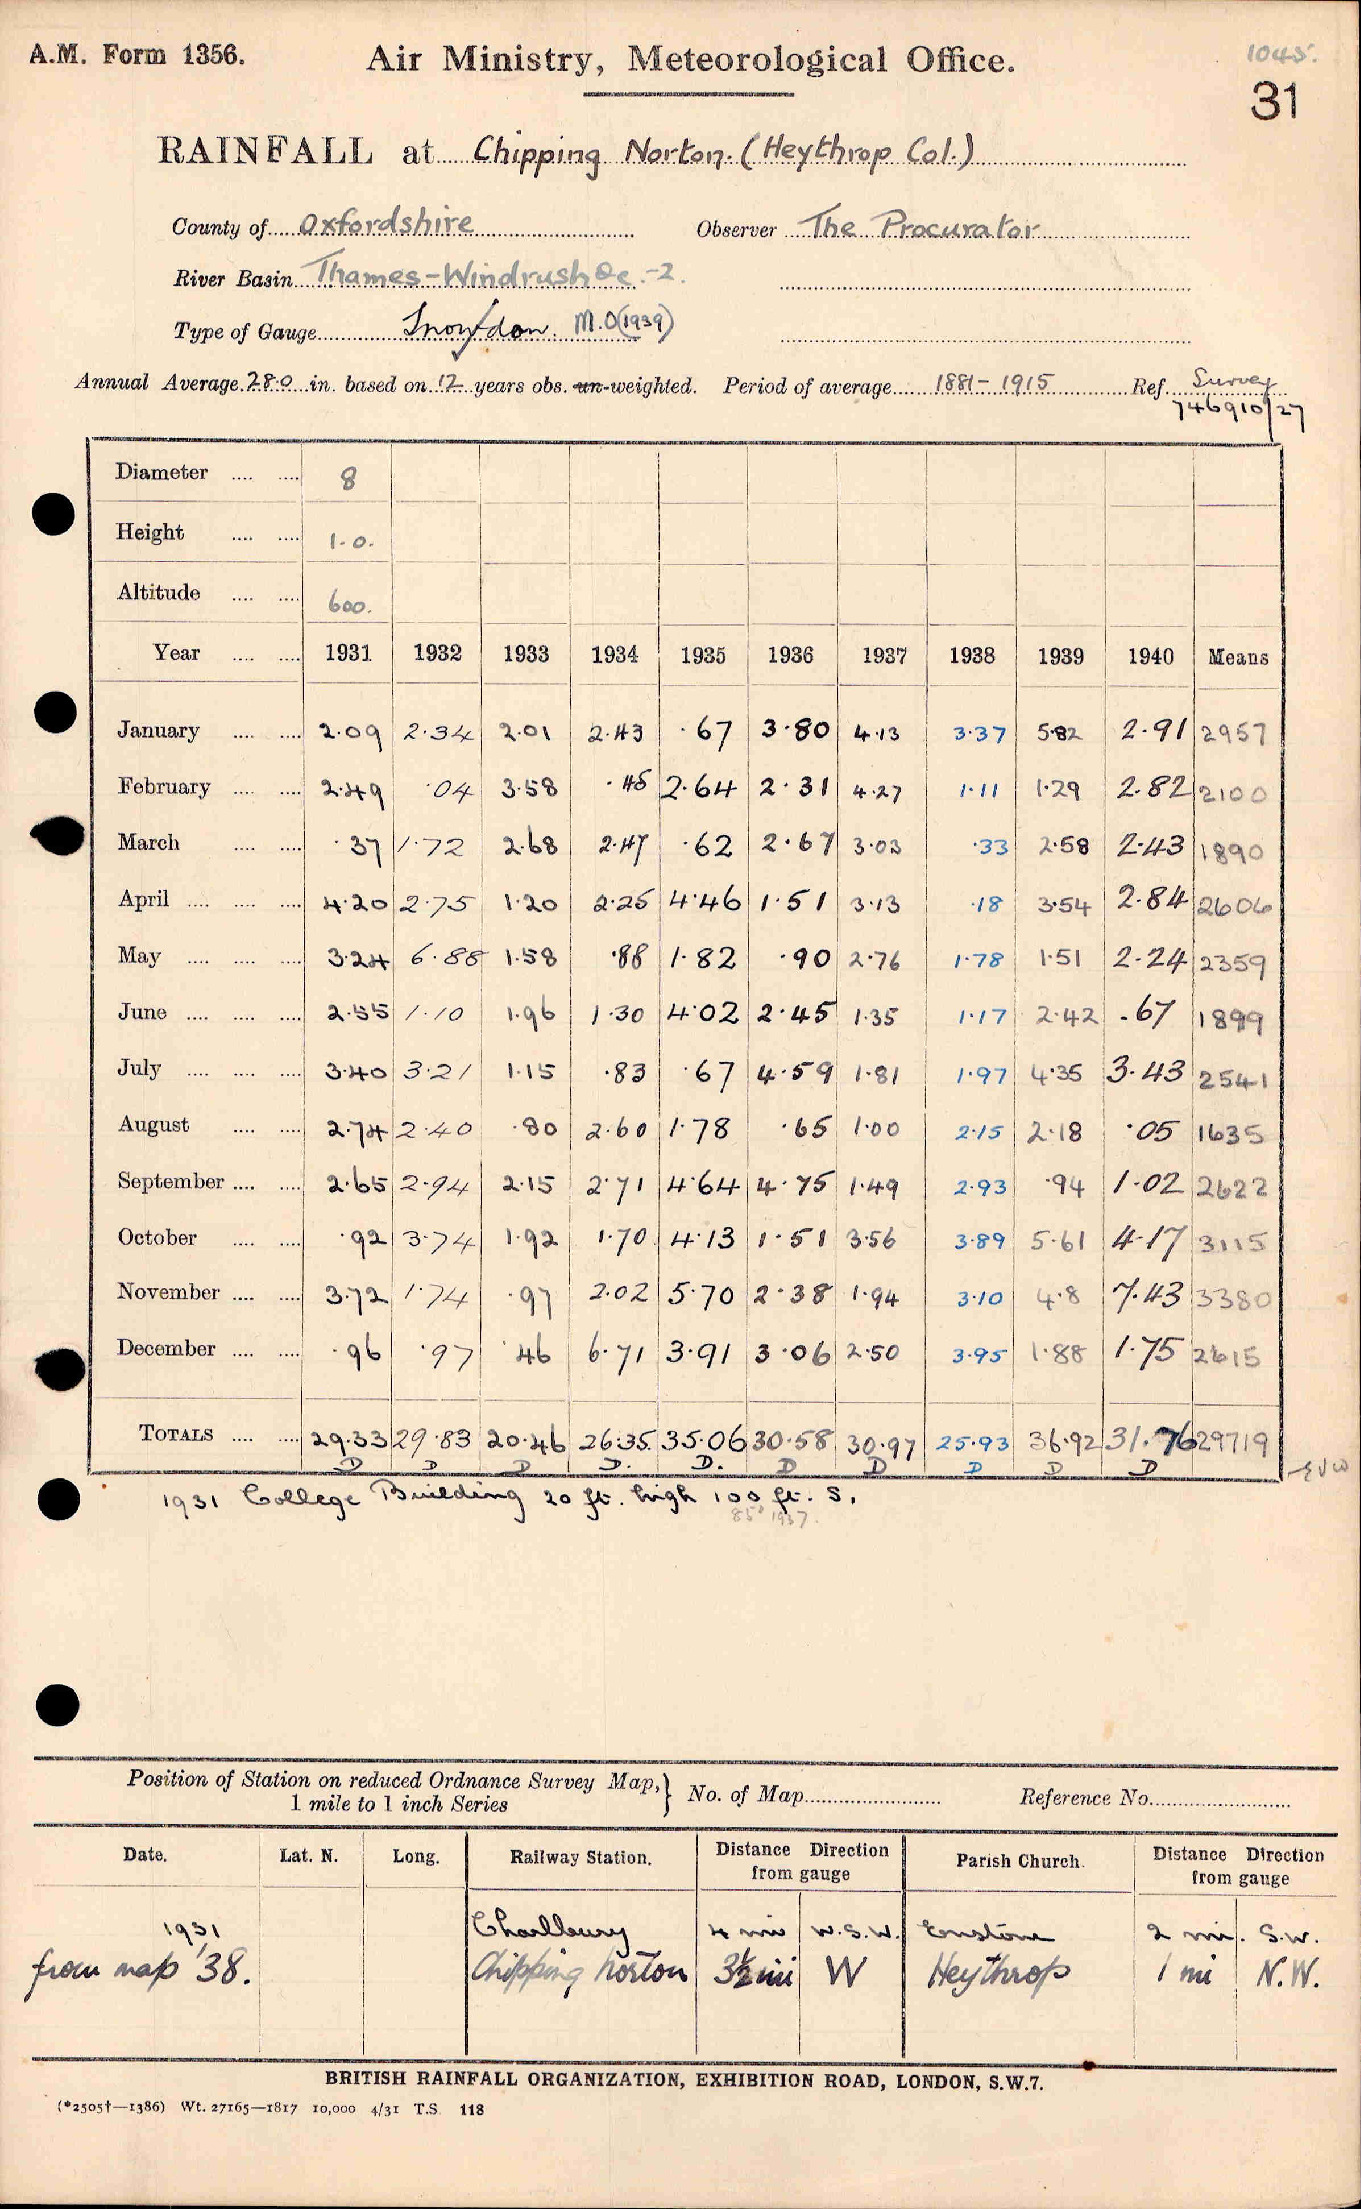 A.M. Form 1356.
Air Ministry, Meteorological Office.
1045.
31
RAINFALL at Chipping Norton. (Heythrop Col.)
County of Oxfordshire Observer The Procurator
River Basin Thames-Windrush &c.-2.
Type of Gauge Snowdon. M.O (1939)
Annual Average 28.0 in. based on 12 years obs. un-weighted. Period of average 1881-1915 Ref. Survey
746910/27
Diameter 8
Height 1.0.
Altitude 600.
Year 1931 1932 1933 1934 1935 1936 1937 1938 1939 1940 Means
January 2.09 2.34 2.01 2.43 .67 3.80 4.13 3.37 5.82 2.91 2957
February 2.49 .04 3.58 .45 2.64 2.31 4.27 1.11 1.29 2.82 2100
March .37 1.72 2.68 2.47 .62 2.67 3.03 .33 2.58 2.43 1890
April 4.20 2.75 1.20 2.25 4.46 1.51 3.13 .18 3.54 2.84 2606
May 3.24 6.88 1.58 .88 1.82 .90 2.76 1.78 1.51 2.24 2359
June 2.55 1.10 1.96 1.30 4.02 2.45 1.35 1.17 2.42 .67 1899
July 3.40 3.21 1.15 .83 .67 4.59 1.81 1.97 4.35 3.43 2541
August 2.74 2.40 .80 2.60 1.78 .65 1.00 2.15 2.18 .05 1635
September 2.65 2.94 2.15 2.71 4.64 4.75 1.49 2.93 .94 1.02 2622
October .92 3.74 1.92 1.70 4.13 1.51 3.56 3.89 5.61 4.17 3115
November 3.72 1.74 .97 2.02 5.70 2.38 1.94 3.10 4.8 7.43 3380
December .96 .97 .46 6.71 3.91 3.06 2.50 3.95 1.88 1.75 2615
TOTALS 29.33 29.83 20.46 26.35 35.06 30.58 30.97 25.93 36.92 31.76 29719
D D D D. D. D D D D D
1931 College Building 20 ft. high 100 ft. S.
85° 1937.
Position of Station on reduced Ordnance Survey Map,
1 mile to 1 inch Series } No. of Map Reference No.
Date. Lat. N. Long. Railway Station. Distance Direction from gauge Parish Church. Distance Direction from gauge
1931 Charlbury 4 mi W.S.W. Enstone 2 mi. S.W.
from map '38. Chipping Norton 3½ mi W Heythrop 1 mi N.W.
BRITISH RAINFALL ORGANIZATION, EXHIBITION ROAD, LONDON, S.W.7.
(*2505†—1386) Wt. 27165—1817 10,000 4/31 T.S. 118